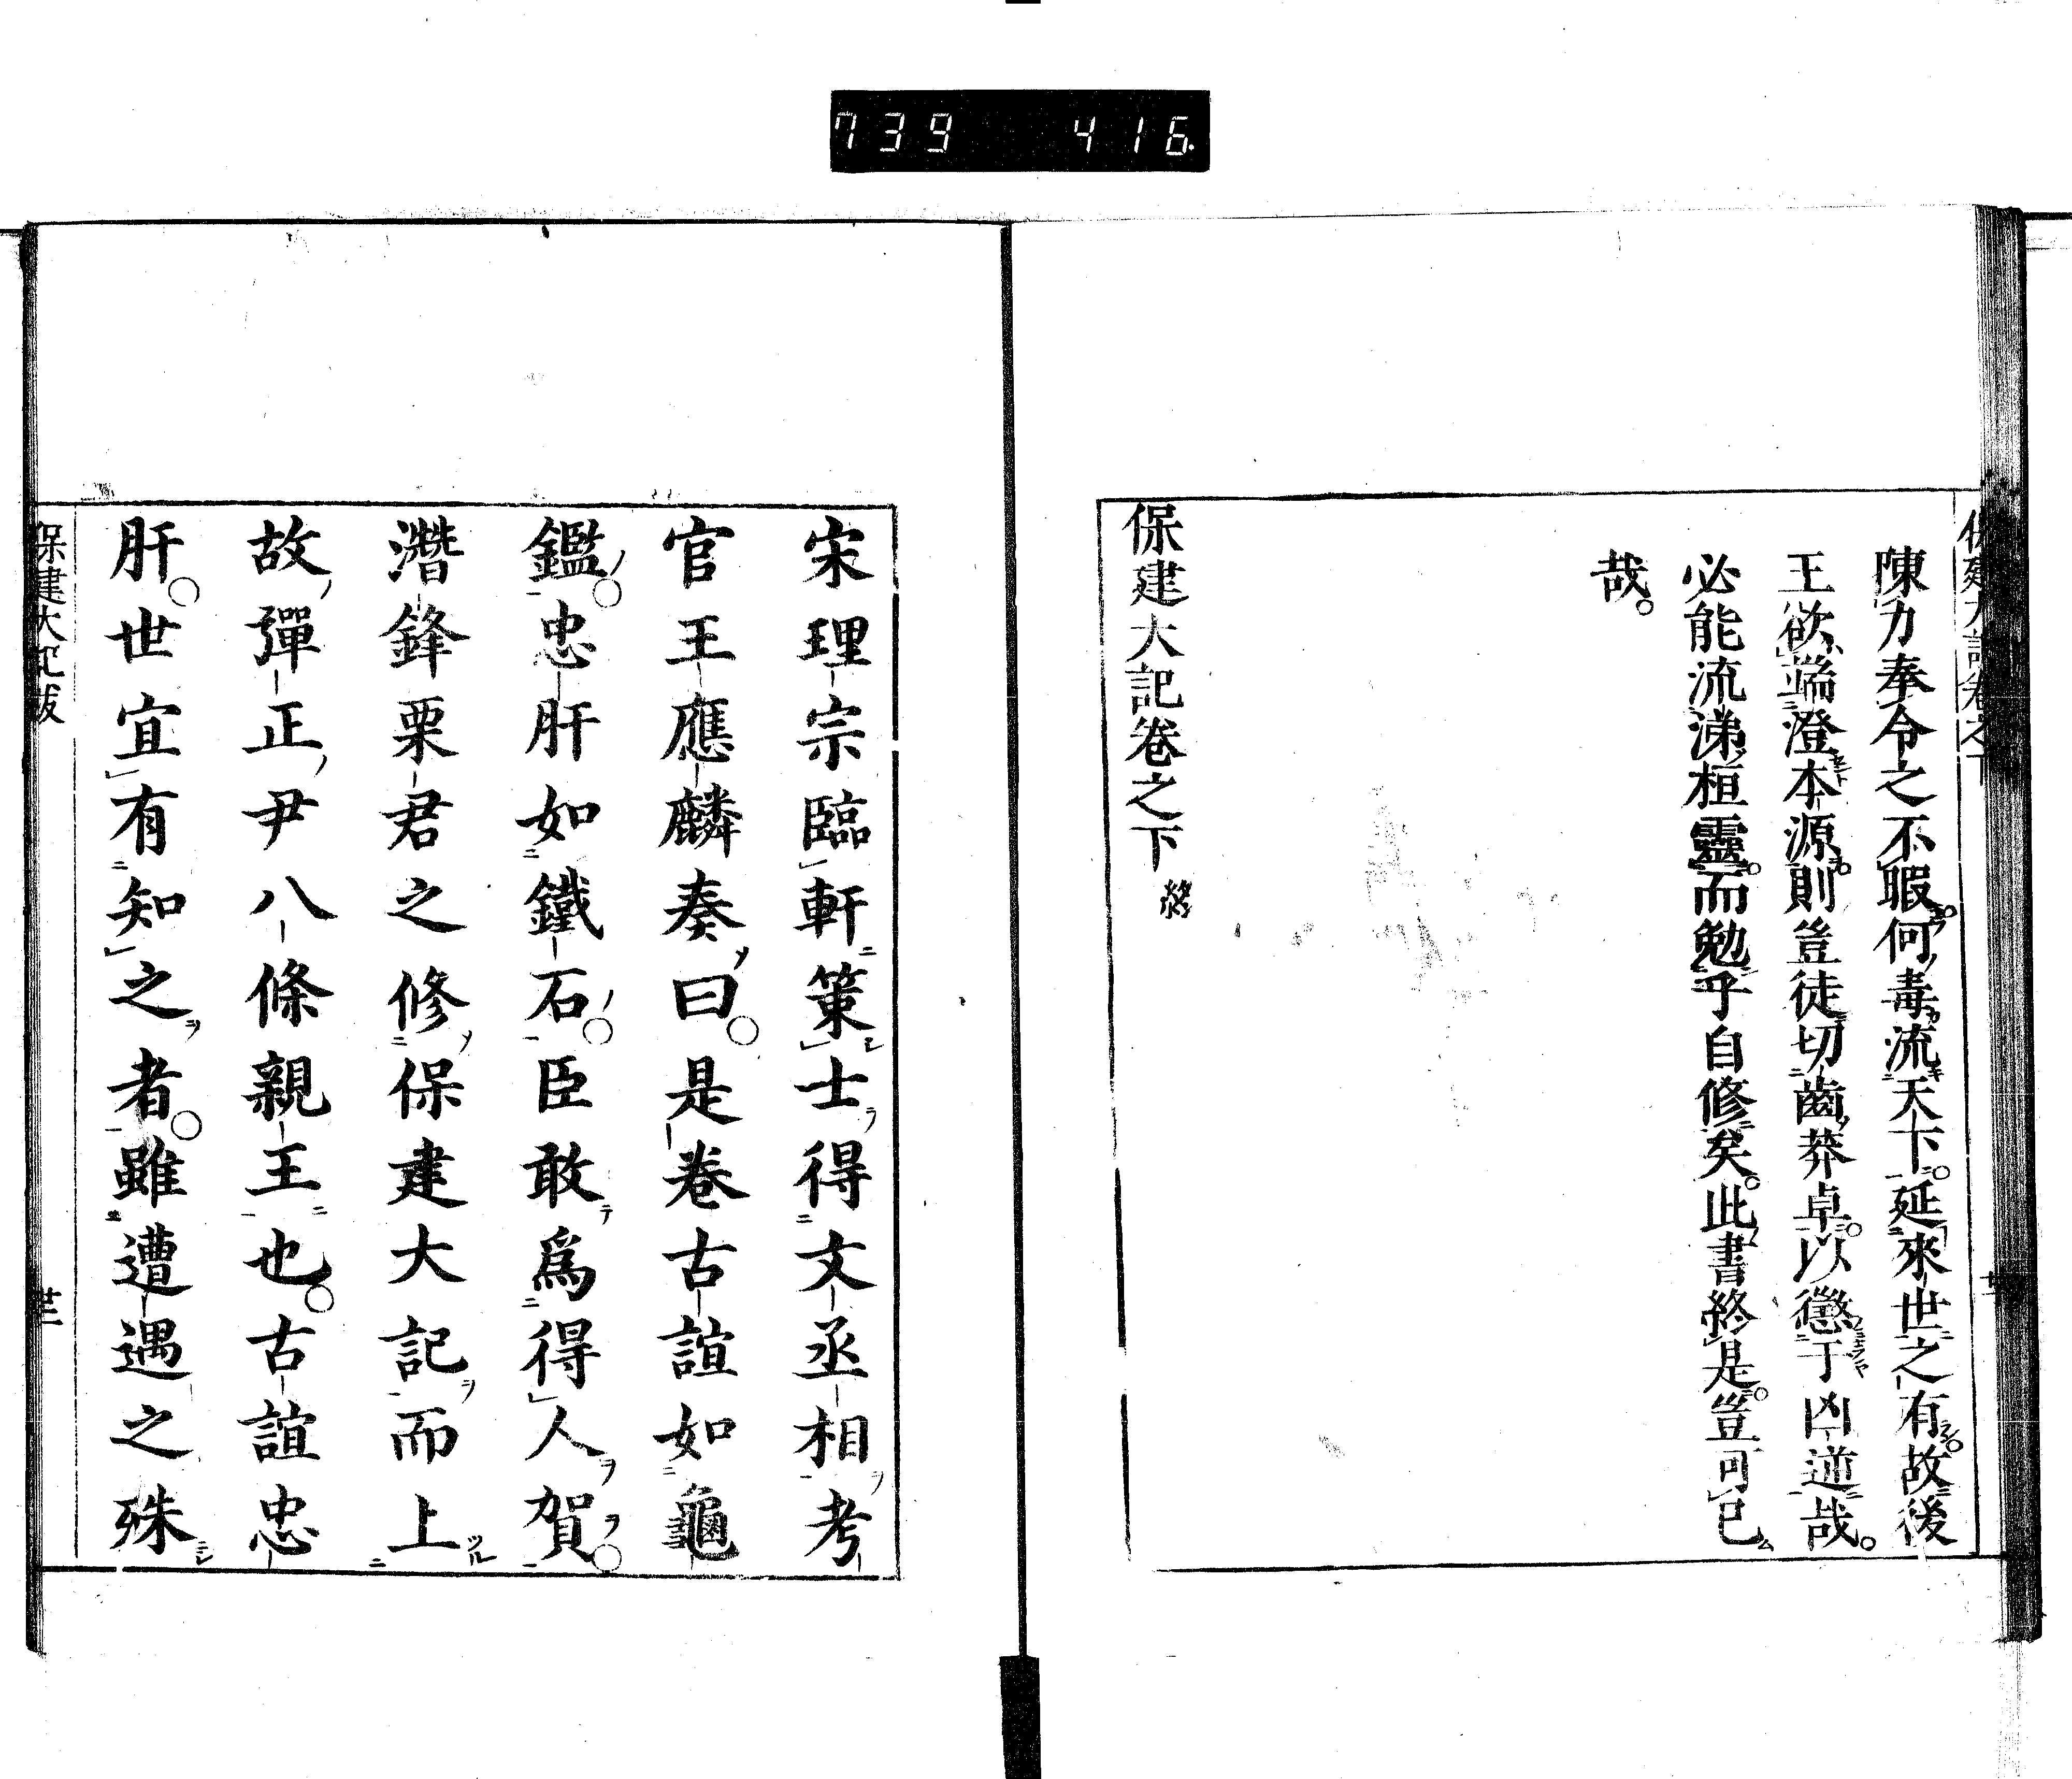 739 416
保建大記卷之下
陳力奉令之不暇何毒流天下延來世之有故後
王欲端澄本源則豈徒切齒莽卓以懲于凶逆哉
必能流涕桓靈而勉乎自修矣此書終是豈可已
哉
保建大記卷之下 終
宋理宗臨軒策士得文丞相考
官王應麟奏曰是卷古誼如龜
鑑忠肝如鐵石臣敢爲得人賀
濳鋒栗君之修保建大記而上
故彈正尹八條親王也古誼忠
肝世宜有知之者雖遭遇之殊
保建大記跋